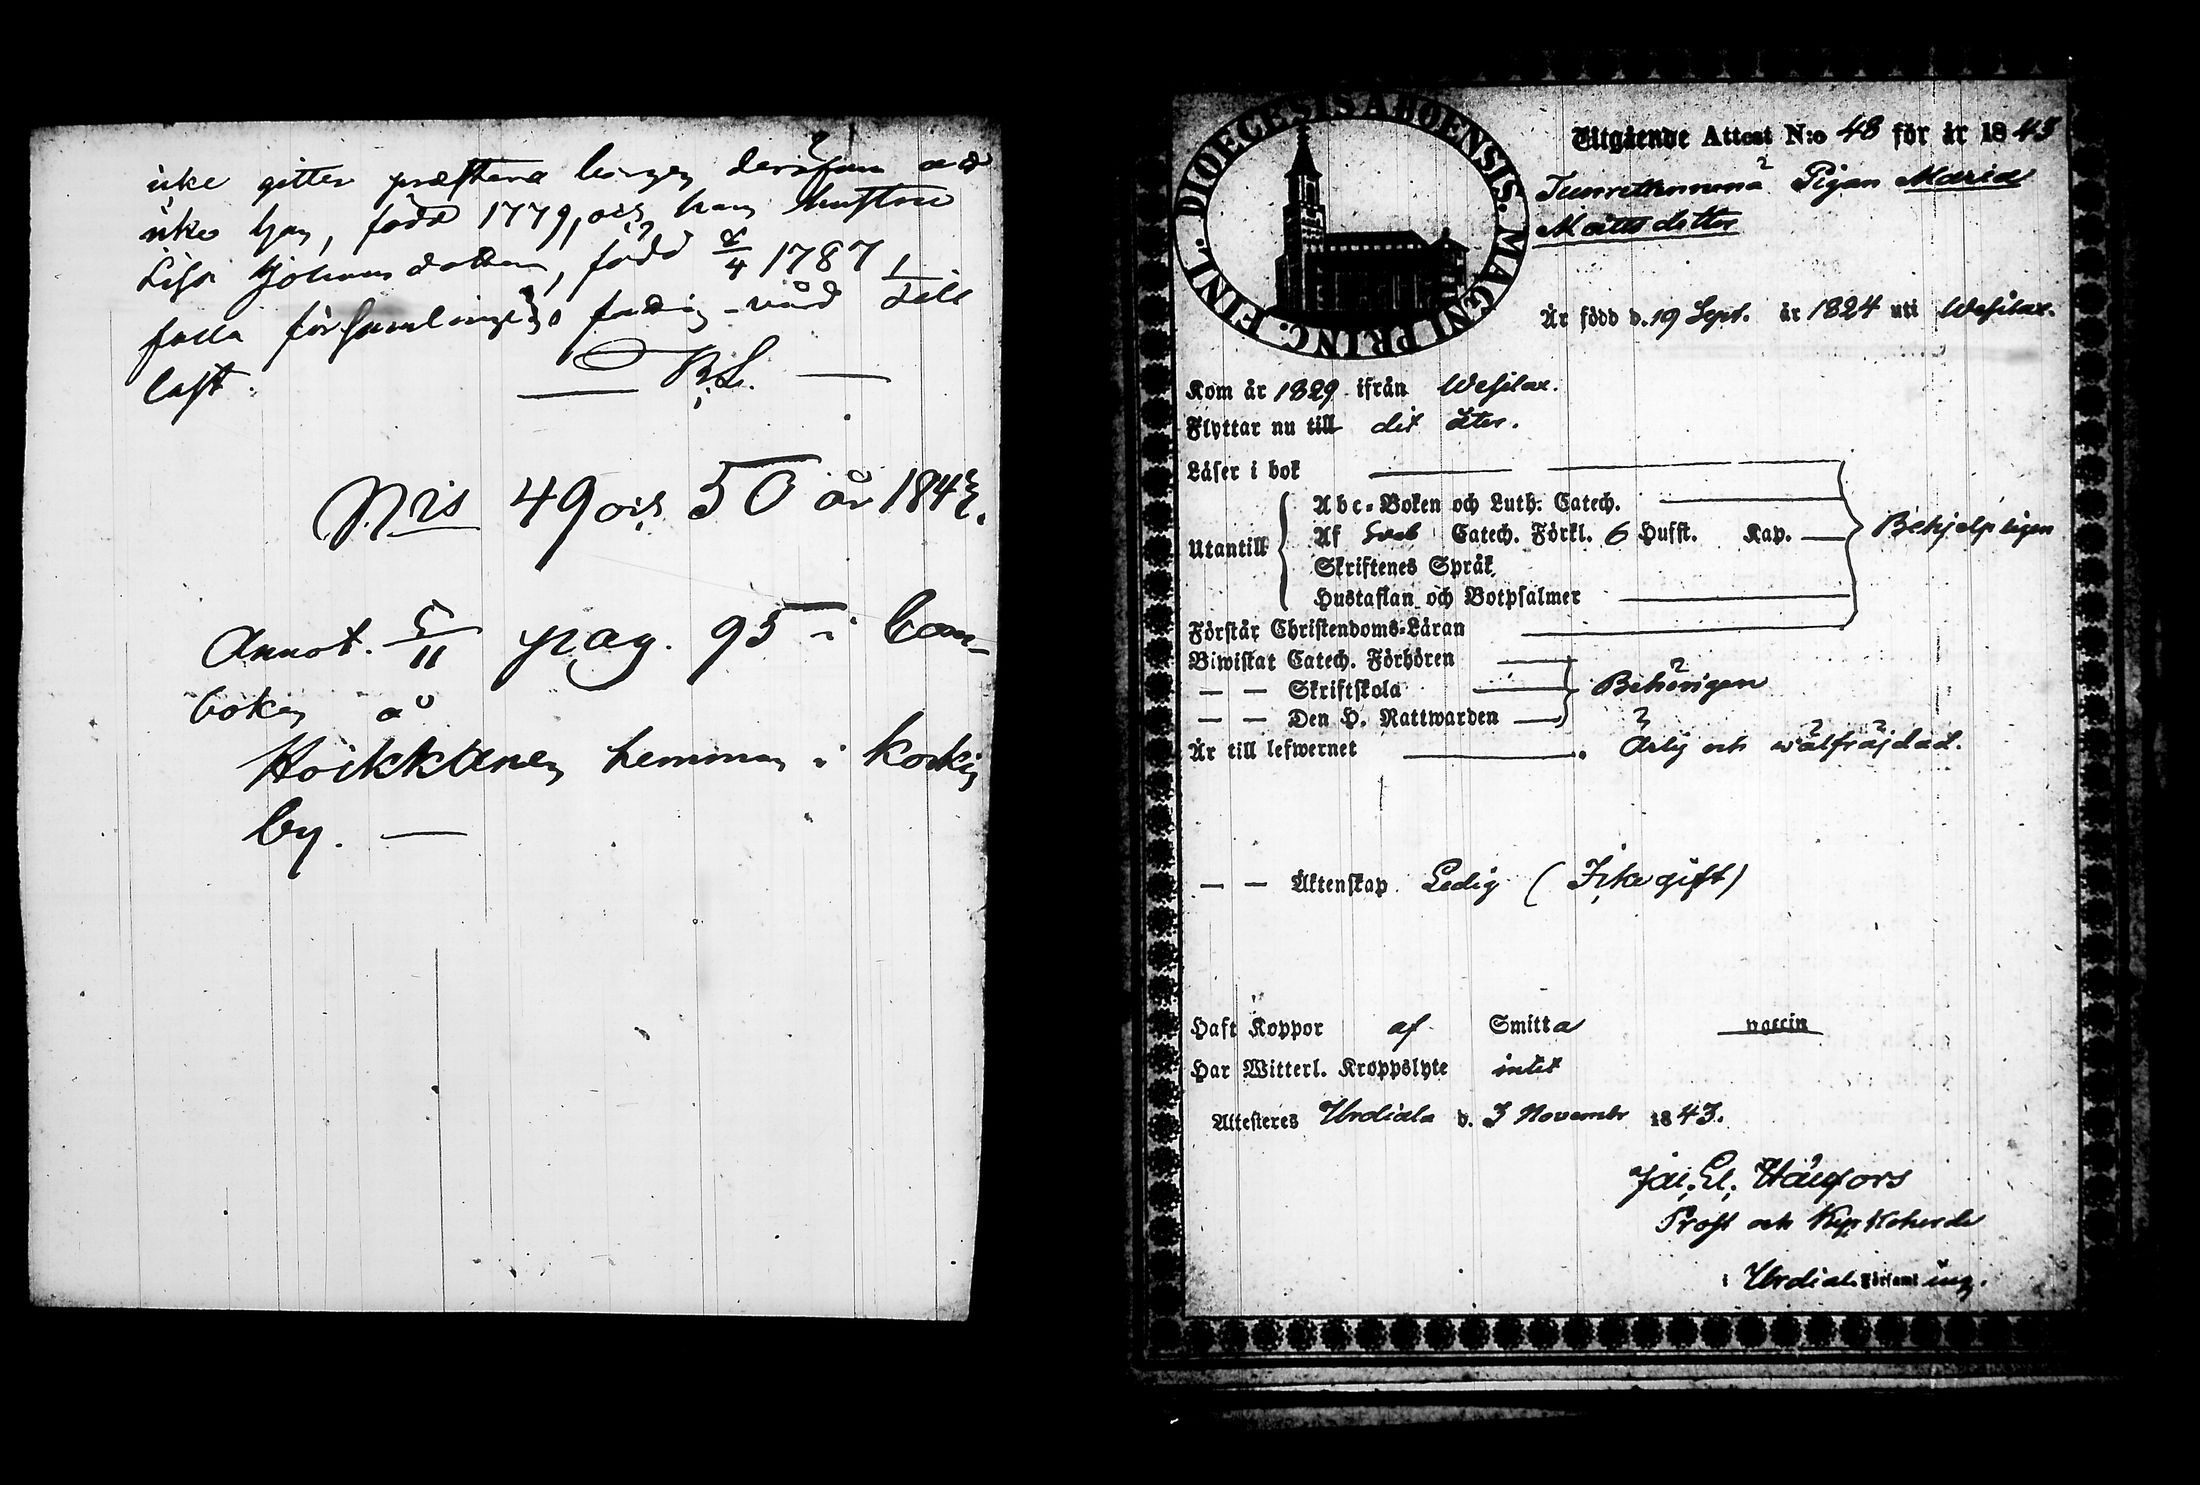 icke gitter præstera borgen derföre att
icke han, född 1779, och hans hustru
Lisa Johansdotter, född 8/4 1787,
falla församlingens fattig-vård till
last.
R. S.
N:ris 49 och 50 år 1843.
Annot. 5/11 pag. 95 i Com-
boken å
Hoikkanen hemman i Korkis
by.
DIOECESIS ABOENSIS. MAGNI PRINC. FINL.
Utgående Attest N:o 48 för år 1843
Pigan Maria
Matts dotter
Är född d. 19 Sept. år 1824 uti Wesilax.
Kom år 1829 ifrån Wesilax.
Flyttar nu till dit åter.
Läser i bok
Abc-Boken och Luth. Catech.
Utantill Af Sveb Catech. Förkl. 6 Hufst. Kap. Behjelpligen
Skriftenes Språk
Hustaflan och Botpsalmer
Förstår Christendoms-Läran
Biwistat Catech. Förhören
— — Skriftskola Behörigen
— — Den H. Nattwarden
Är till lefwernet Ärlig och wälfräjdad.
— — Äktenskap Ledig (Icke gift)
Haft Koppor af Smitta vaccin
Har Witterl. Kroppslyte intet
Attesteras Urdiala d. 3 November 1843.
Jac. El. Hälfors
Prost och Kyrkoherde
i Urdiala Församling.